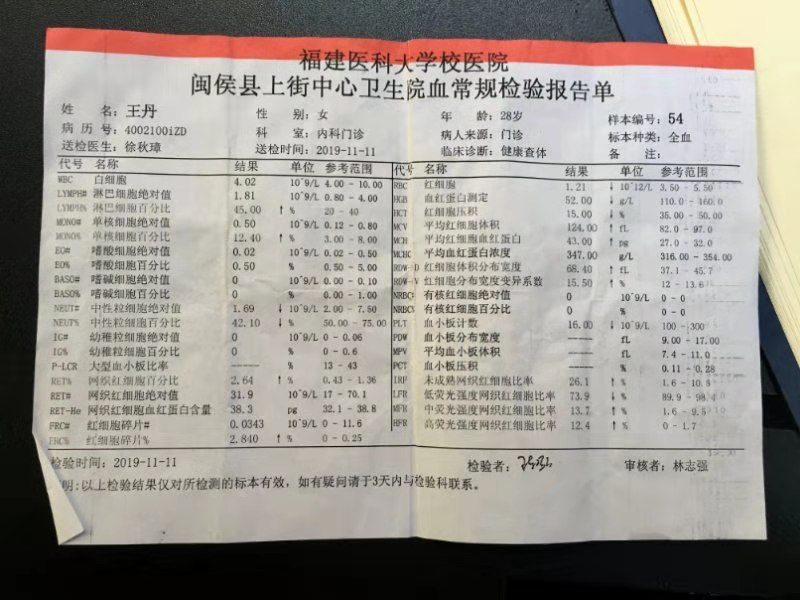 福建医科大学校医院
闽侯县上街中心卫生院血常规检验报告单
姓 名：王丹 性 别：女 年 龄：28岁 样本编号：54
病 历 号：4002100iZD 科 室：内科门诊 病人来源：门诊 标本种类：全血
送检医生：徐秋璋 送检时间：2019-11-11 临床诊断：健康查体 备 注：
代号 名称 结果 单位 参考范围 代号 名称 结果 单位 参考范围
WBC 白细胞 4.02 10^9/L 4.00 - 10.00 RBC 红细胞 1.21 ↓ 10^12/L 3.50 - 5.50
LYMPH# 淋巴细胞绝对值 1.81 10^9/L 0.80 - 4.00 HGB 血红蛋白测定 52.00 ↓ g/L 110.0 - 160.0
LYMPH% 淋巴细胞百分比 45.00 ↑ % 20 - 40 HCT 红细胞压积 15.00 ↓ % 35.00 - 50.00
MONO# 单核细胞绝对值 0.50 10^9/L 0.12 - 0.80 MCV 平均红细胞体积 124.00 ↑ fL 82.0 - 97.0
MONO% 单核细胞百分比 12.40 ↑ % 3.00 - 8.00 MCH 平均红细胞血红蛋白 43.00 ↑ pg 27.0 - 32.0
EO# 嗜酸细胞绝对值 0.02 10^9/L 0.02 - 0.50 MCHC 平均血红蛋白浓度 347.00 g/L 316.00 - 354.00
EO% 嗜酸细胞百分比 0.50 % 0.50 - 5.00 RDW-D 红细胞体积分布宽度 68.40 ↑ fL 37.1 - 45.7
BASO# 嗜碱细胞绝对值 0 10^9/L 0.00 - 0.10 RDW-V 红细胞分布宽度变异系数 15.50 ↑ % 12 - 13.6
BASO% 嗜碱细胞百分比 0 % 0.00 - 1.00 NRBC# 有核红细胞绝对值 0 10^9/L 0 - 0
NEUT# 中性粒细胞绝对值 1.69 ↓ 10^9/L 2.00 - 7.50 NRBC% 有核红细胞百分比 0 % 0 - 0
NEUT% 中性粒细胞百分比 42.10 ↓ % 50.00 - 75.00 PLT 血小板计数 16.00 ↓ 10^9/L 100 - 300
IG# 幼稚粒细胞绝对值 0 10^9/L 0 - 0.06 PDW 血小板分布宽度 ----- fL 9.00 - 17.00
IG% 幼稚粒细胞百分比 0 % 0 - 0.6 MPV 平均血小板体积 ----- fL 7.4 - 11.0
P-LCR 大型血小板比率 ----- % 13 - 43 PCT 血小板压积 ----- % 0.11 - 0.28
RET% 网织红细胞百分比 2.64 ↑ % 0.43 - 1.36 IRF 未成熟网织红细胞比率 26.1 ↑ % 1.6 - 10.8
RET# 网织红细胞绝对值 31.9 10^9/L 17 - 70.1 LFR 低荧光强度网织红细胞比率 73.9 ↓ % 89.9 - 98.4
RET-He 网织红细胞血红蛋白含量 38.3 pg 32.1 - 38.8 MFR 中荧光强度网织红细胞比率 13.7 ↑ % 1.6 - 9.5
FRC# 红细胞碎片# 0.0343 10^9/L 0 - 11.6 HFR 高荧光强度网织红细胞比率 12.4 ↑ % 0 - 1.7
FRC% 红细胞碎片% 2.840 ↑ % 0 - 0.25
检验时间：2019-11-11 检验者： 审核者：林志强
明：以上检验结果仅对所检测的标本有效，如有疑问请于3天内与检验科联系。